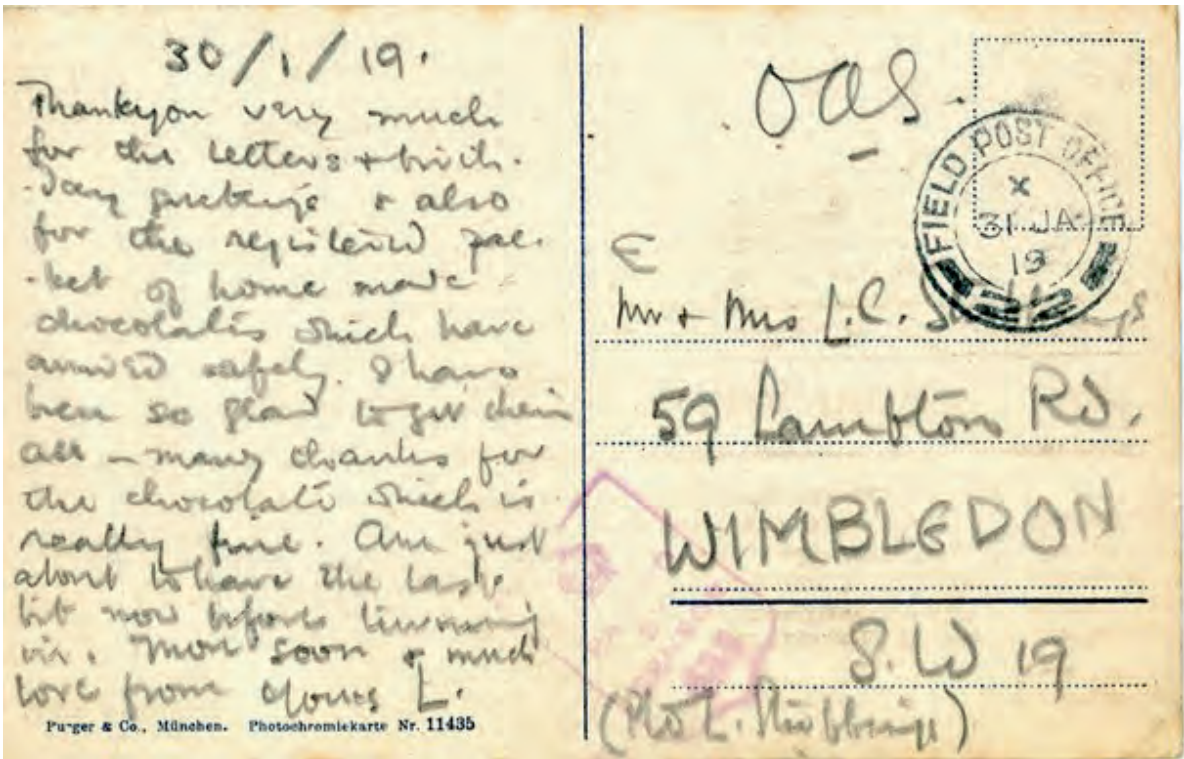 30/1/19.
Thankyou very much
for the letters + birth-
-day greetings & also
for the registered pac-
-ket of home made
chocolates which have
arrived safely. I have
been so glad to get them
all – many thanks for
the chocolate which is
really fine. Am just
about to have the last
bit now before turning
in. More soon & much
love from Yours L.
Purger & Co., München. Photochromiekarte Nr. 11435
OAS.
FIELD POST OFFICE
X
31 JA
19
Mr + Mrs L.C.
59 Lambton Rd.
WIMBLEDON
S.W 19
(Pte L. Stubbings)